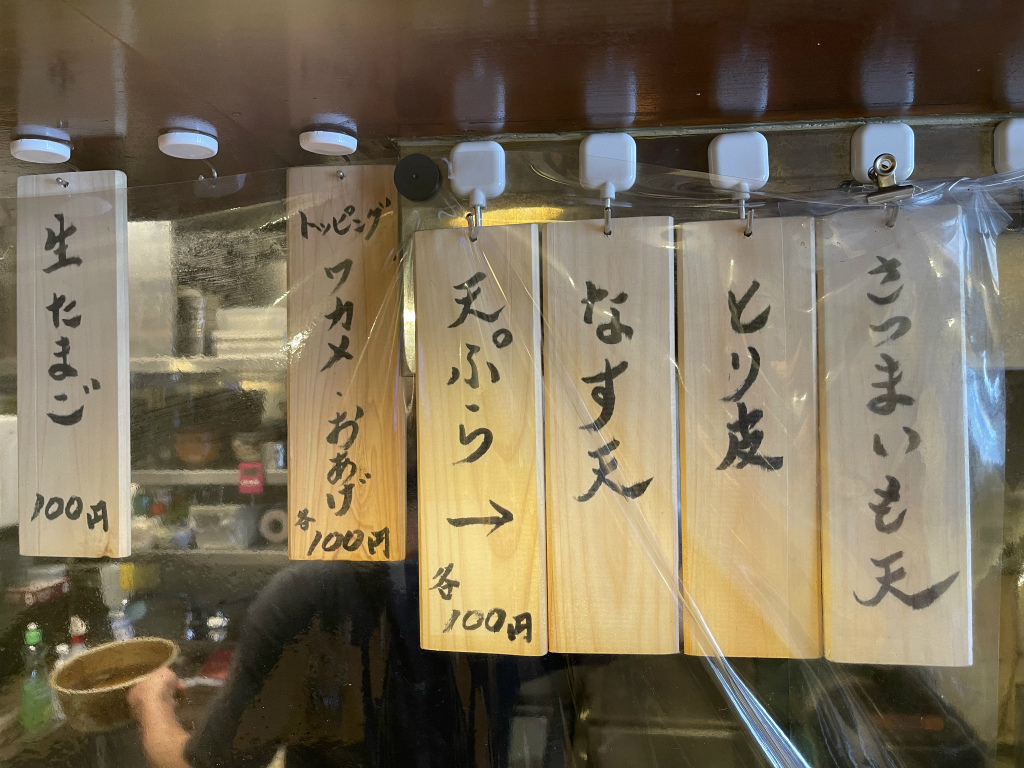 生たまご
100円
トッピング
ワカメ・おあげ
各100円
天ぷら→
各100円
なす天
とり皮
さつまいも天